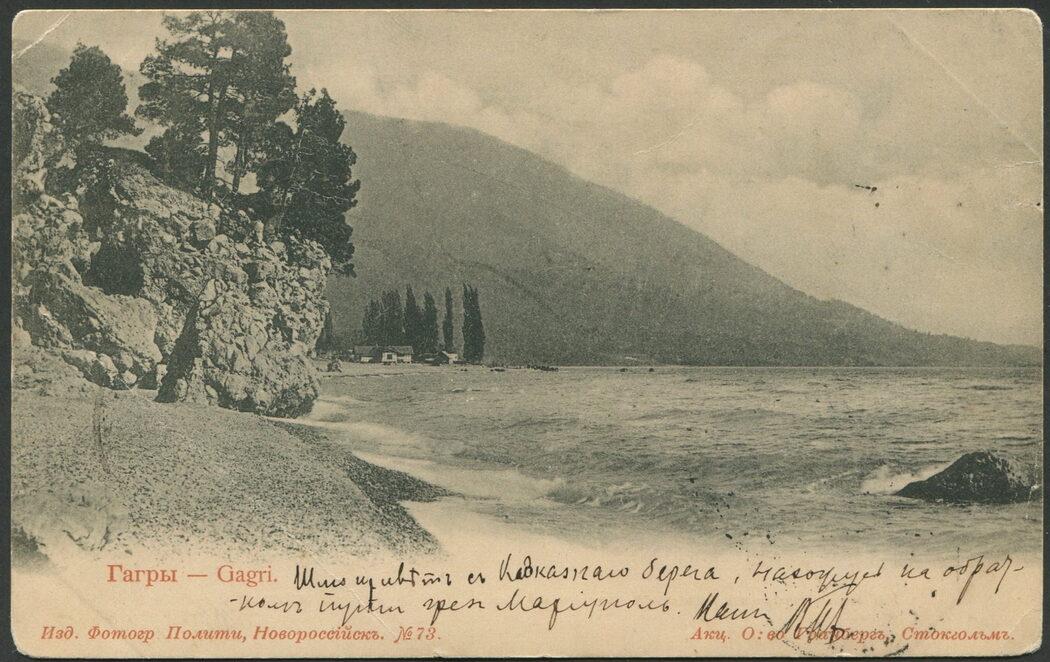 Гагры — Gagri. Шлю привѣтъ съ Кавказкаго берега, нахожусь на обрат-
-номъ пути чрез Маріуполь.
Изд. Фотогр Полити, Новороссійскъ. №73. Акц. О:во Гранбергъ, Стокгольмъ.